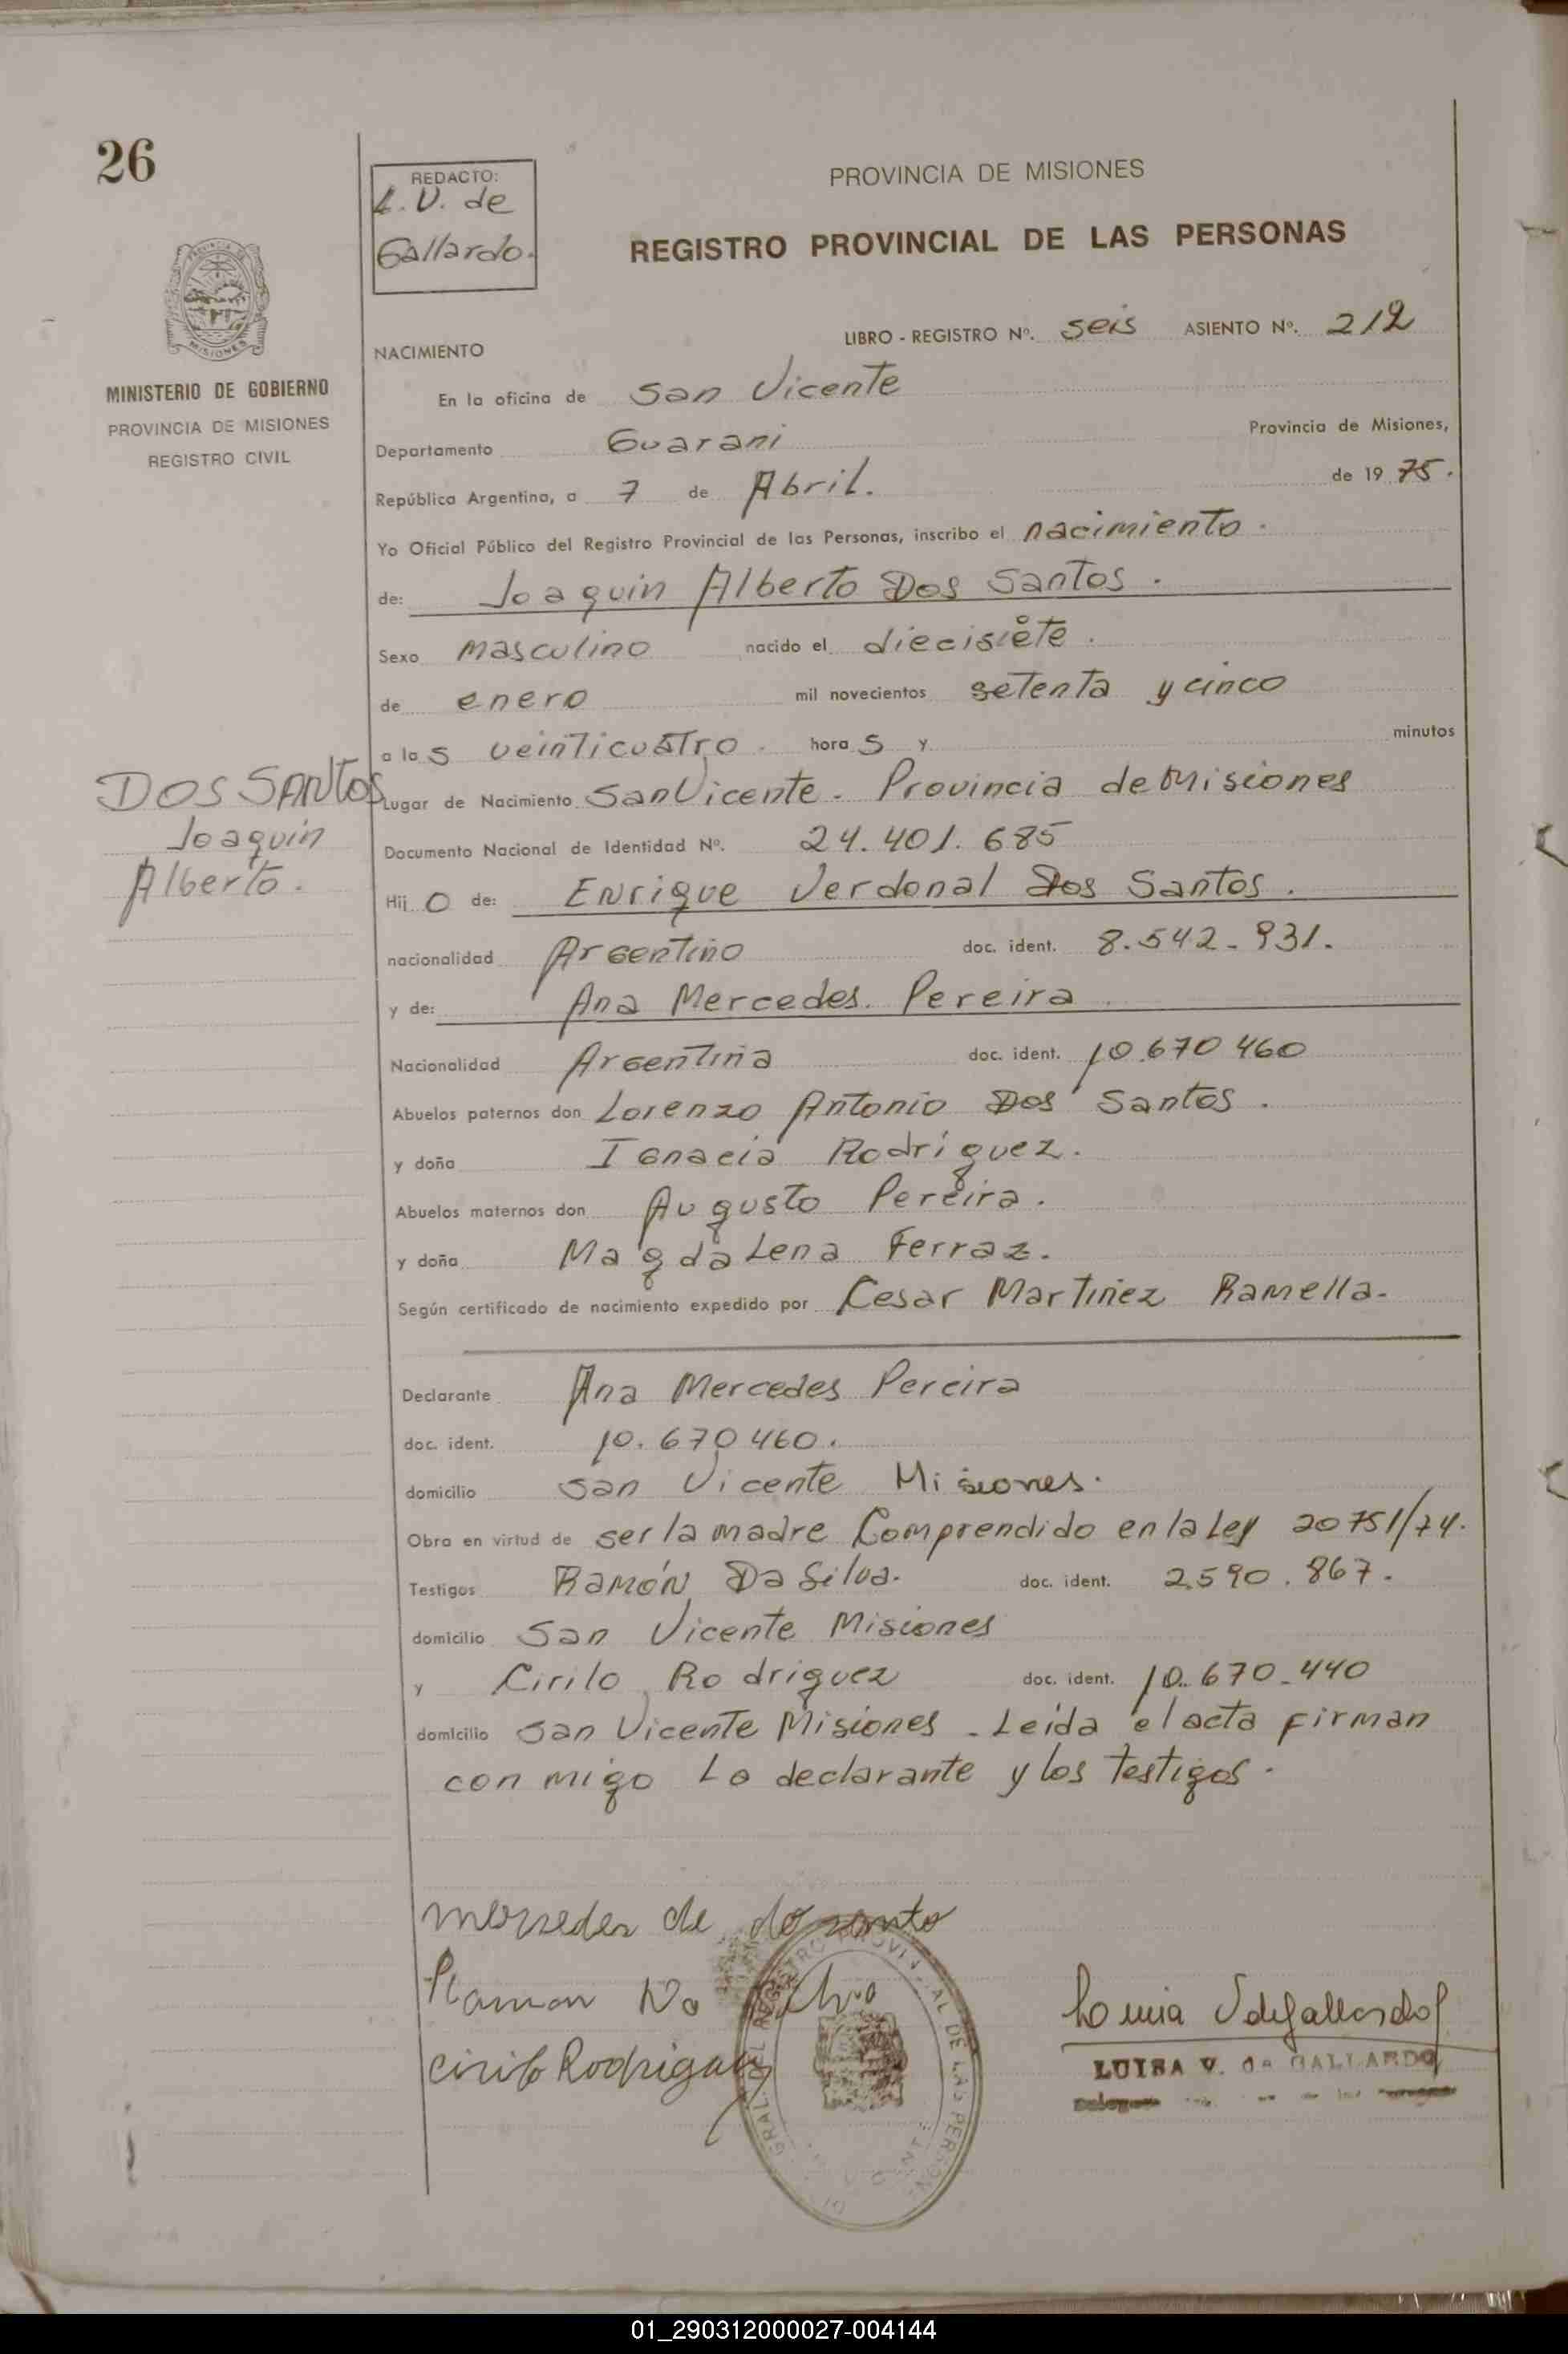 26
REDACTO:
L. V. de
Gallardo.
PROVINCIA DE MISIONES
REGISTRO PROVINCIAL DE LAS PERSONAS
MISIONES
MINISTERIO DE GOBIERNO
PROVINCIA DE MISIONES
REGISTRO CIVIL
LIBRO - REGISTRO Nº. seis ASIENTO Nº. 212
NACIMIENTO
En la oficina de San Vicente
Departamento Guarani Provincia de Misiones,
República Argentina, a 7 de Abril. de 19 75.
Yo Oficial Público del Registro Provincial de las Personas, inscribo el nacimiento.
de: Joaquin Alberto Dos Santos.
Sexo masculino nacido el diecisiete.
de enero mil novecientos setenta y cinco
a las veinticuatro. horas y minutos
Lugar de Nacimiento San Vicente. Provincia de Misiones
DOS SANTOS
Joaquin
Alberto.
Documento Nacional de Identidad Nº. 24.401.685
Hijo de: Enrique Verdonal Dos Santos.
nacionalidad Argentino doc. ident. 8.542-931.
y de: Ana Mercedes Pereira
Nacionalidad Argentina doc. ident. 10.670460
Abuelos paternos don Lorenzo Antonio Dos Santos.
y doña Ignacia Rodriguez.
Abuelos maternos don Augusto Pereira.
y doña Magdalena Ferraz.
Según certificado de nacimiento expedido por Cesar Martinez Ramella.
Declarante Ana Mercedes Pereira
doc. ident. 10.670460.
domicilio San Vicente Misiones.
Obra en virtud de ser la madre Comprendido en la Ley 20751/74.
Testigos Ramón Da Silva. doc. ident. 2.590.867.
domicilio San Vicente Misiones
y Cirilo Rodriguez doc. ident. 10.670-440
domicilio San Vicente Misiones - Leida el acta firman
con migo La declarante y los testigos.
merseder de do santo
Ramon Da Silva
cirilo Rodrigue
Luisa V de Gallardo
LUISA V. de GALLARDO
GRAL. DEL REGISTRO PROVINCIAL DE LAS PERSONAS
01_290312000027-004144